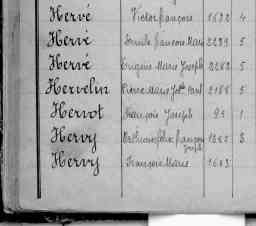 Hervé Victor françois 1692 4
Hervé françois Marie 2299 5
Hervé Eugène Marie Joseph 2282 5
Hervelin Pierre Marie 2168 5
Hervot François Joseph 95 1
Hervy françois 3
Joseph
Hervy François Marie 1603